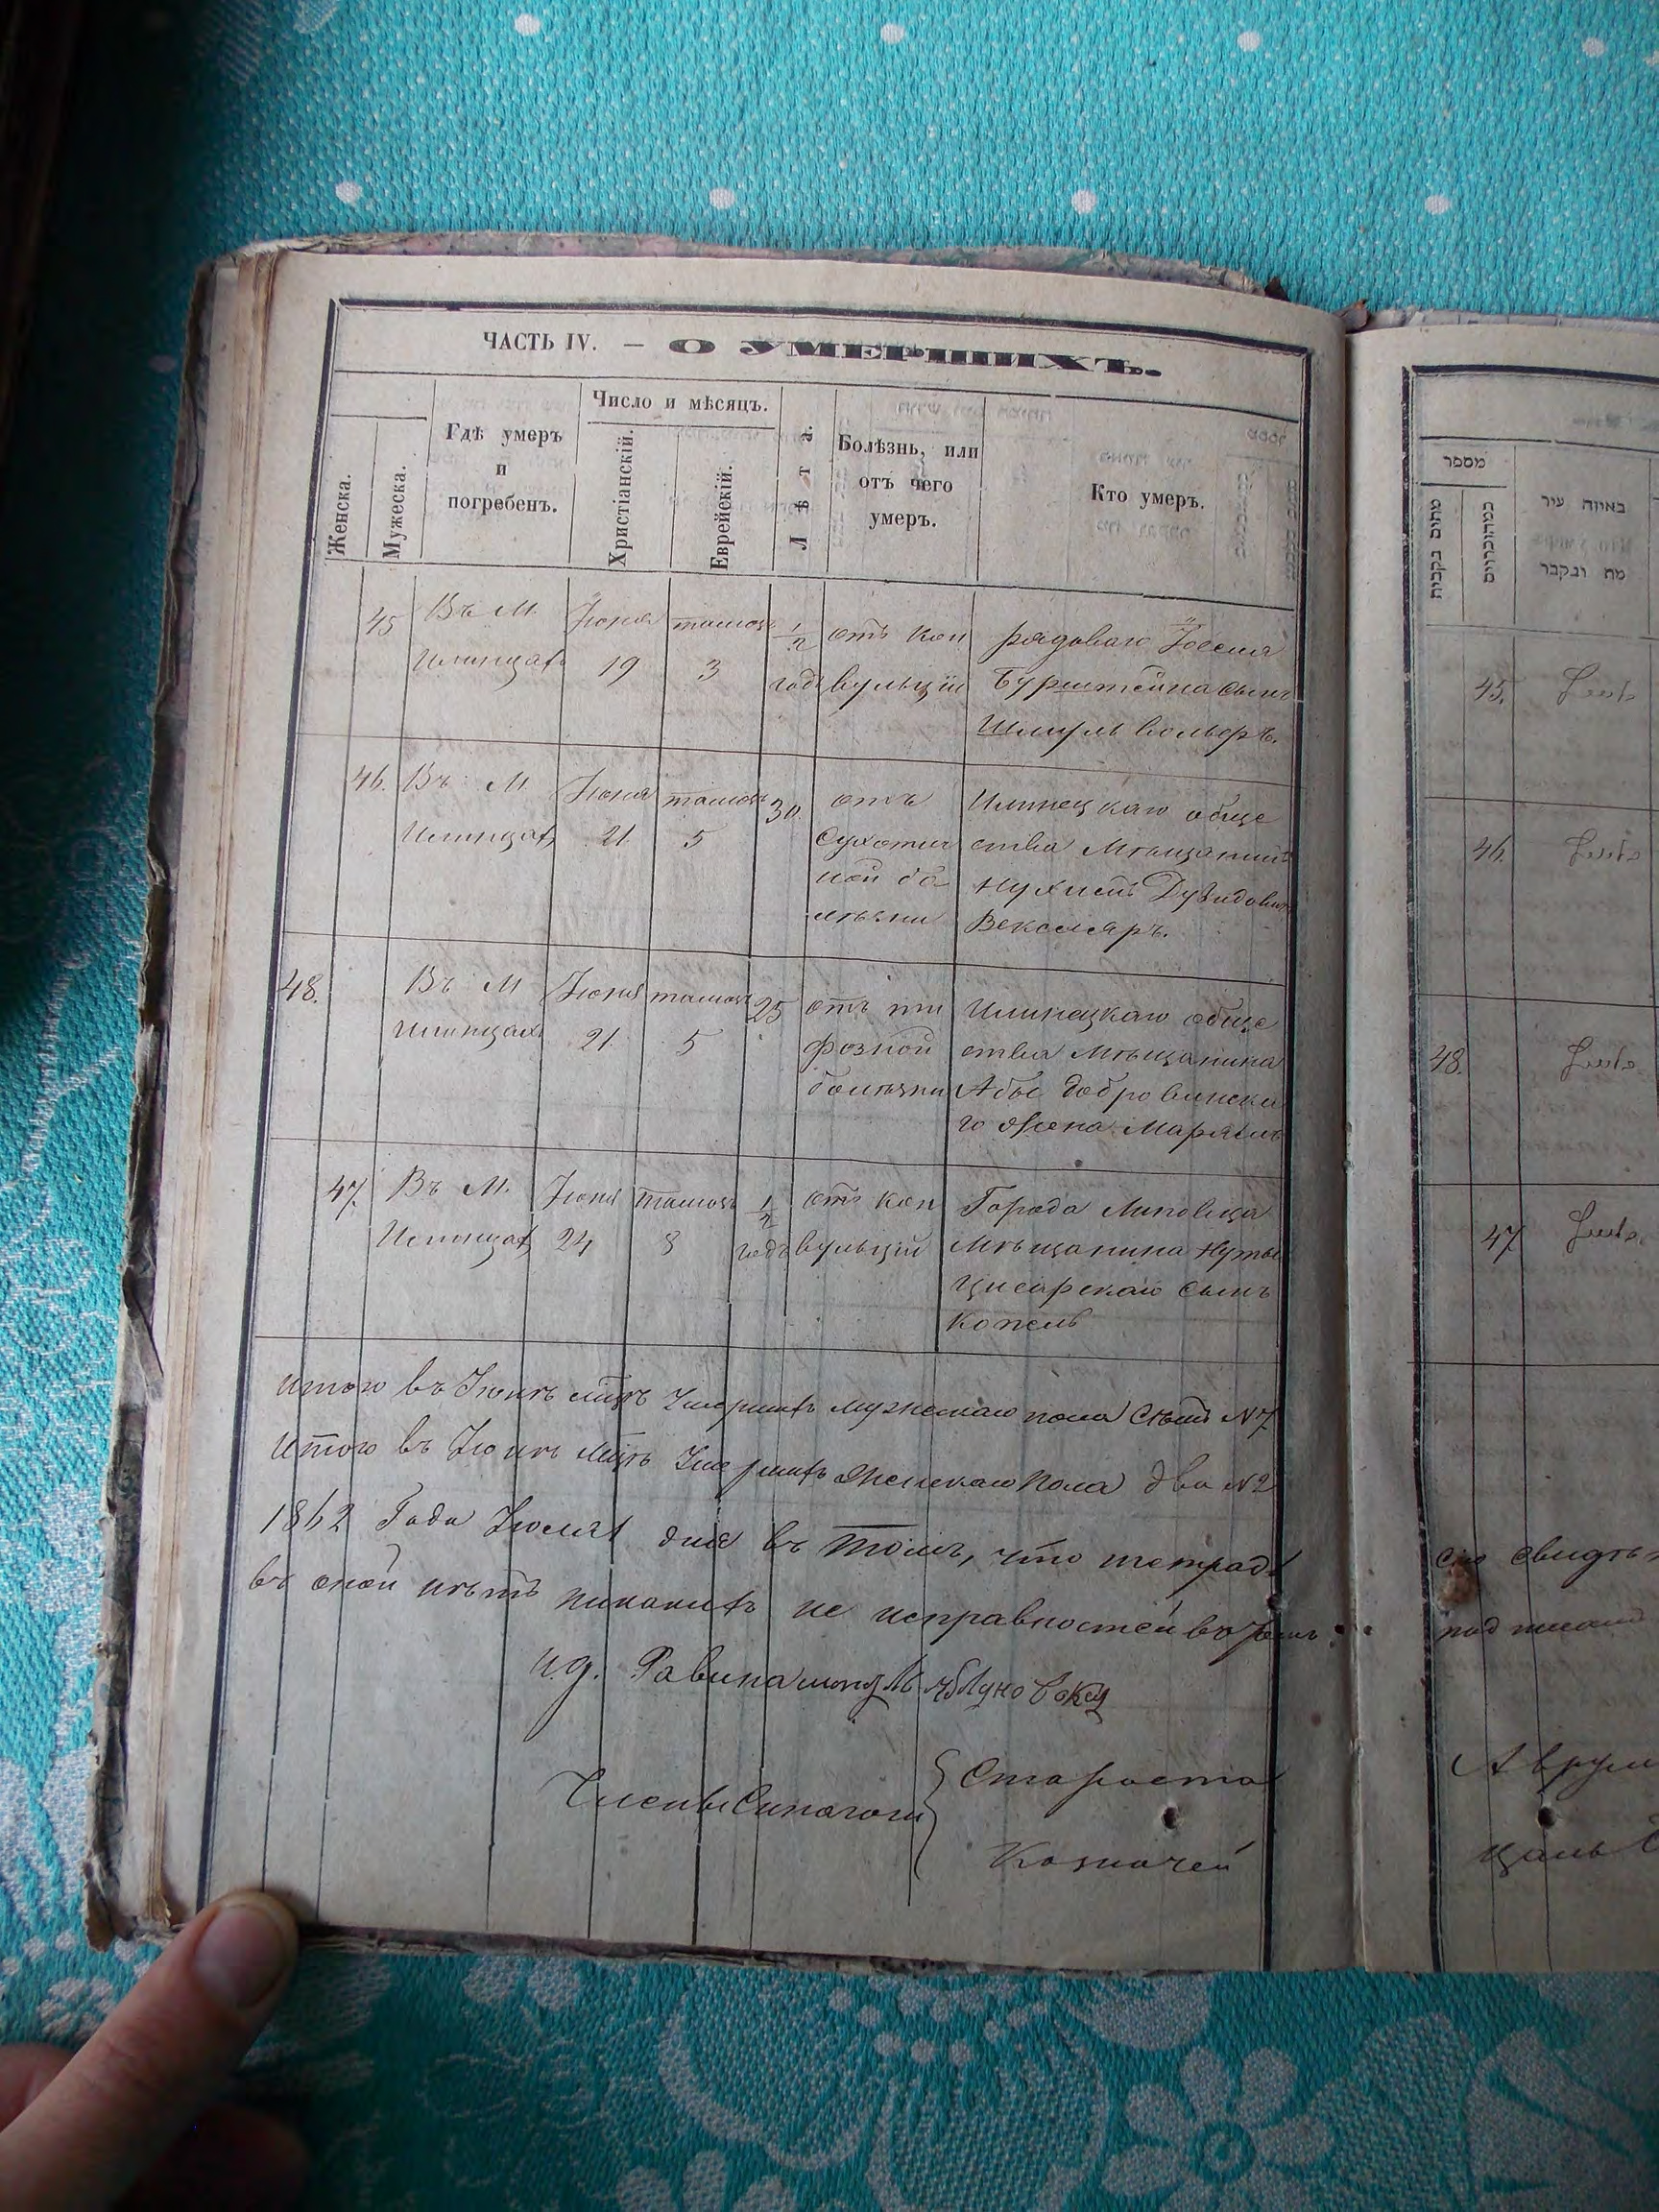 ЧАСТЬ IV. — О УМЕРШИХЪ.
Женска.
Мужеска.
Гдѣ умеръ
и
погребенъ.
Число и мѣсяцъ.
Христіанскій.
Еврейскій.
Лѣта.
Болѣзнь, или
отъ чего
умеръ.
Кто умеръ.
45
Въ М.
Илинцахъ
Іюня
19
тамозъ
3
1/2
годъ
отъ кон
вульціи
рядоваго Іосия
Бурштейна сынъ
Шмуль Вольфъ.
46.
Въ М
Илинцахъ
Іюня
21
тамозъ
5
30.
отъ
сухотич
ной бо
лѣзни
Илинецкаго обще
ства Мѣщанинъ
Нухимъ Дувидовичъ
Векслеръ.
48.
Въ М
Илинцахъ
Іюня
21
тамозъ
5
25
отъ ти
фозной
болѣзни
Илинецкаго обще
ства Мѣщанина
Абы Добровинска
го Жена Марямъ
47.
Въ М.
Илинцахъ
Іюня
24
тамозъ
8
1/2
годъ
отъ кон
вульціи
Города Липовца
Мѣщанина Нуты
Цисарскаго сынъ
Копель
итого въ Іюнѣ мцѣ Умершихъ мужескаго пола Сѣмъ N7
Итого въ Іюнѣ Мцѣ Умершихъ Женскаго Пола два N2
1862 Года Іюля 1 дня въ томъ, что тетрадь
въ оной нѣтъ никакихъ не исправностей въ
И.д. Равина Яблуновскій
Члены Синагоги
Староста
Казначей
מספר
מתים נקבות
באיזה עיר
מת ונקבר
45.
46
48.
47
свидѣт
Аврум